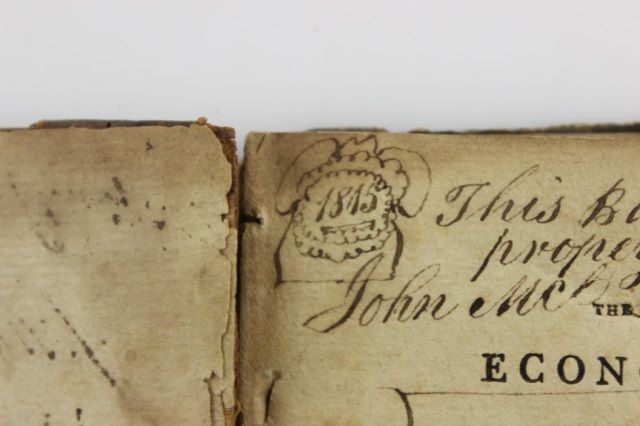 1845
This Bo
proper
John McC
THE
ECONO